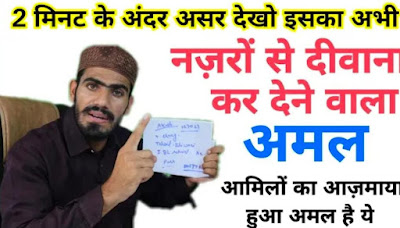 2 मिनट के अंदर असर देखो इसका अभी
नज़रों से दीवाना
कर देने वाला
अमल
आमिलों का आज़माया
हुआ अमल है ये